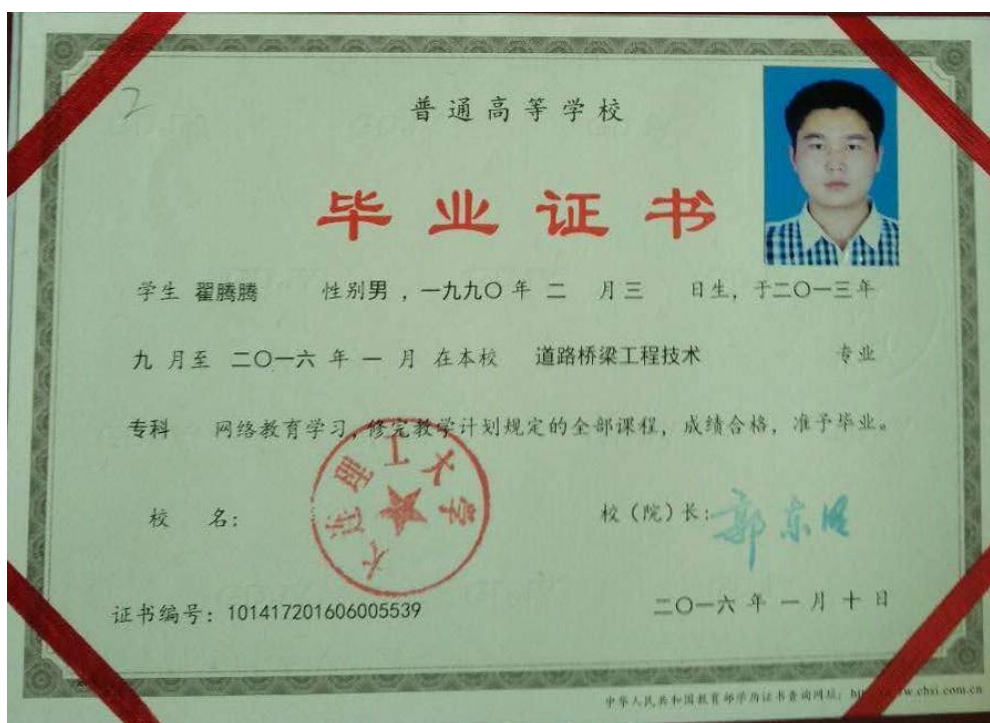 2
普通高等学校
毕业证书
学生 翟腾腾 性别男，一九九〇年 二 月三 日生，于二〇一三年
九 月至 二〇一六 年 一 月 在本校 道路桥梁工程技术 专业
专科 网络教育学习，修完教学计划规定的全部课程，成绩合格，准予毕业。
大连理工大学
校 名：
校（院）长：郭东明
证书编号：101417201606005539
二〇一六 年 一 月 十 日
中华人民共和国教育部学历证书查询网址：http://www.chsi.com.cn